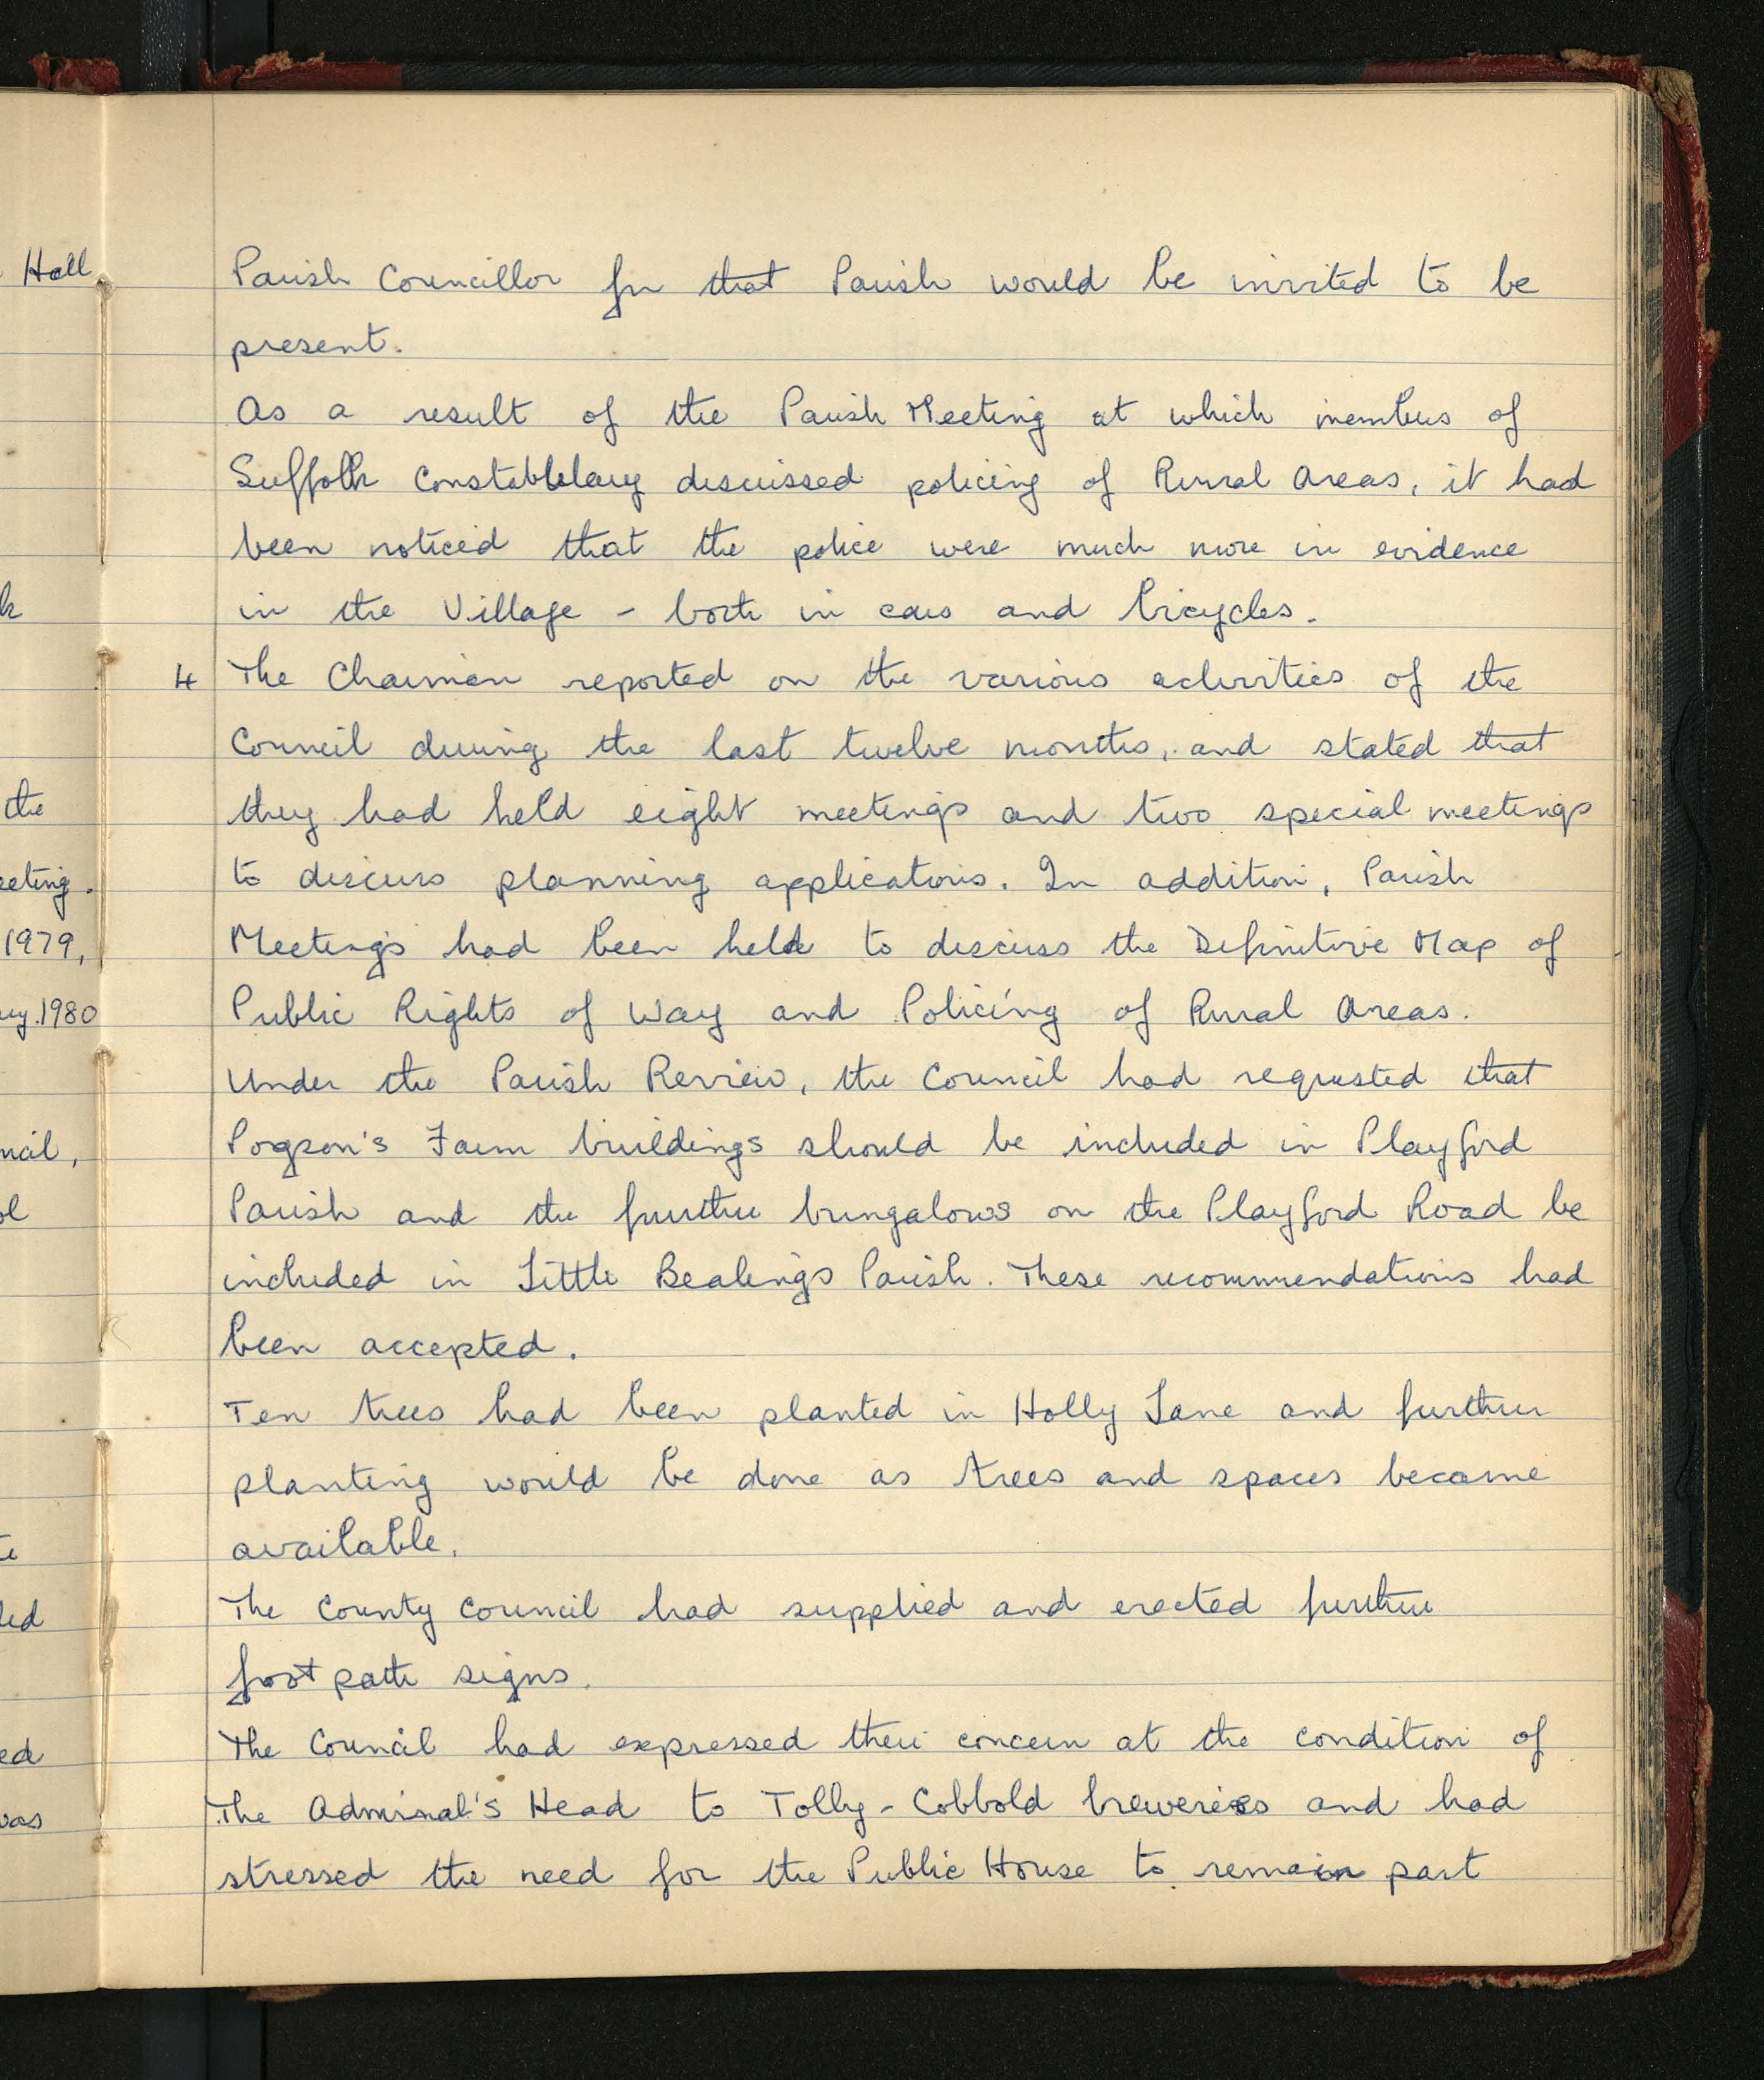 Hall
k
the
eeting.
1979,
ry.1980
ncil,
ol
te
ded
ed
was
Parish Councillor for that Parish would be invited to be
present.
As a result of the Parish Meeting at which members of
Suffolk Constablelary discussed policing of Rural Areas, it had
been noticed that the police were much more in evidence
in the Village - both in cars and bicycles.
4 The Chairman reported on the various activities of the
Council during the last twelve months, and stated that
they had held eight meetings and two special meetings
to discuss planning applications. In addition, Parish
Meetings had been held to discuss the Definitive Map of
Public Rights of Way and Policing of Rural Areas.
Under the Parish Review, the Council had requested that
Pogson's Farm buildings should be included in Playford
Parish and the further bungalows on the Playford Road be
included in Little Bealings Parish. These recommendations had
been accepted.
Ten trees had been planted in Holly Lane and further
planting would be done as trees and spaces became
available.
The County Council had supplied and erected further
foot path signs.
The Council had expressed their concern at the condition of
The Admiral's Head to Tolly-Cobbold breweries and had
stressed the need for the Public House to remain part